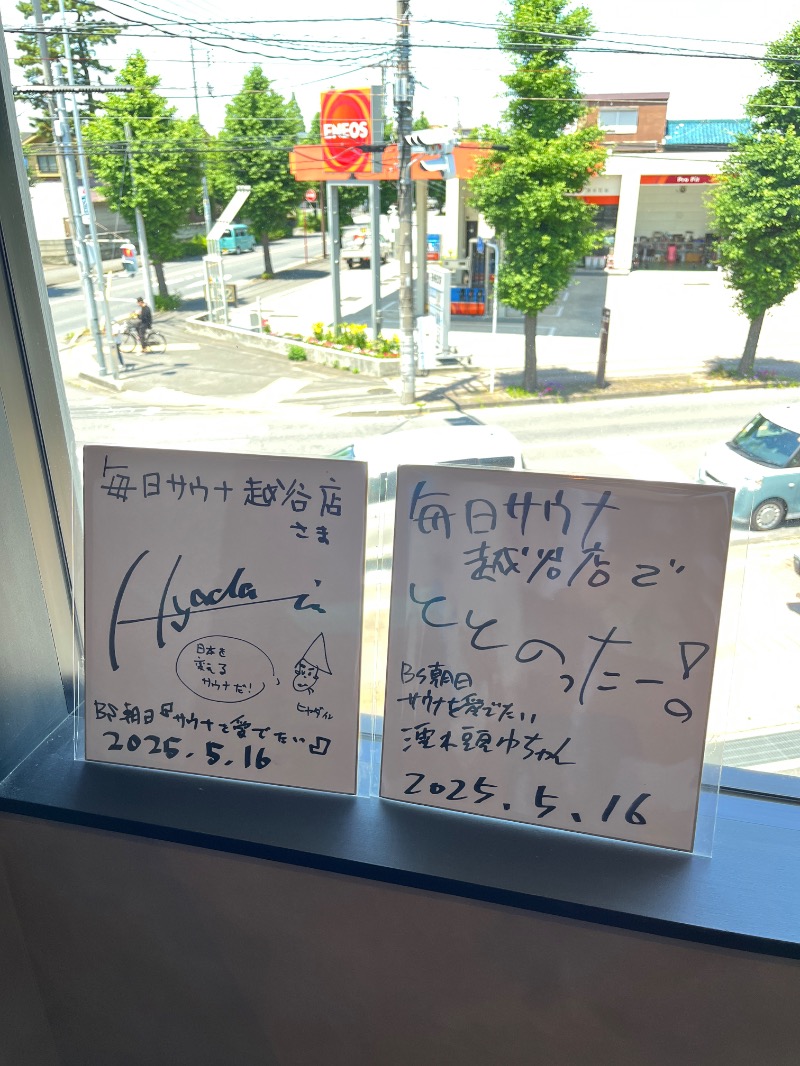 ENEOS
毎日サウナ 越谷店
さま
Hyadain
日本を
変える
サウナだ!
ヒャダイン
BS朝日『サウナを愛でたい』
2025.5.16
毎日サウナ
越谷店で
ととのったー!
BS朝日
サウナを愛でたい
濡れ頭巾ちゃん
2025.5.16